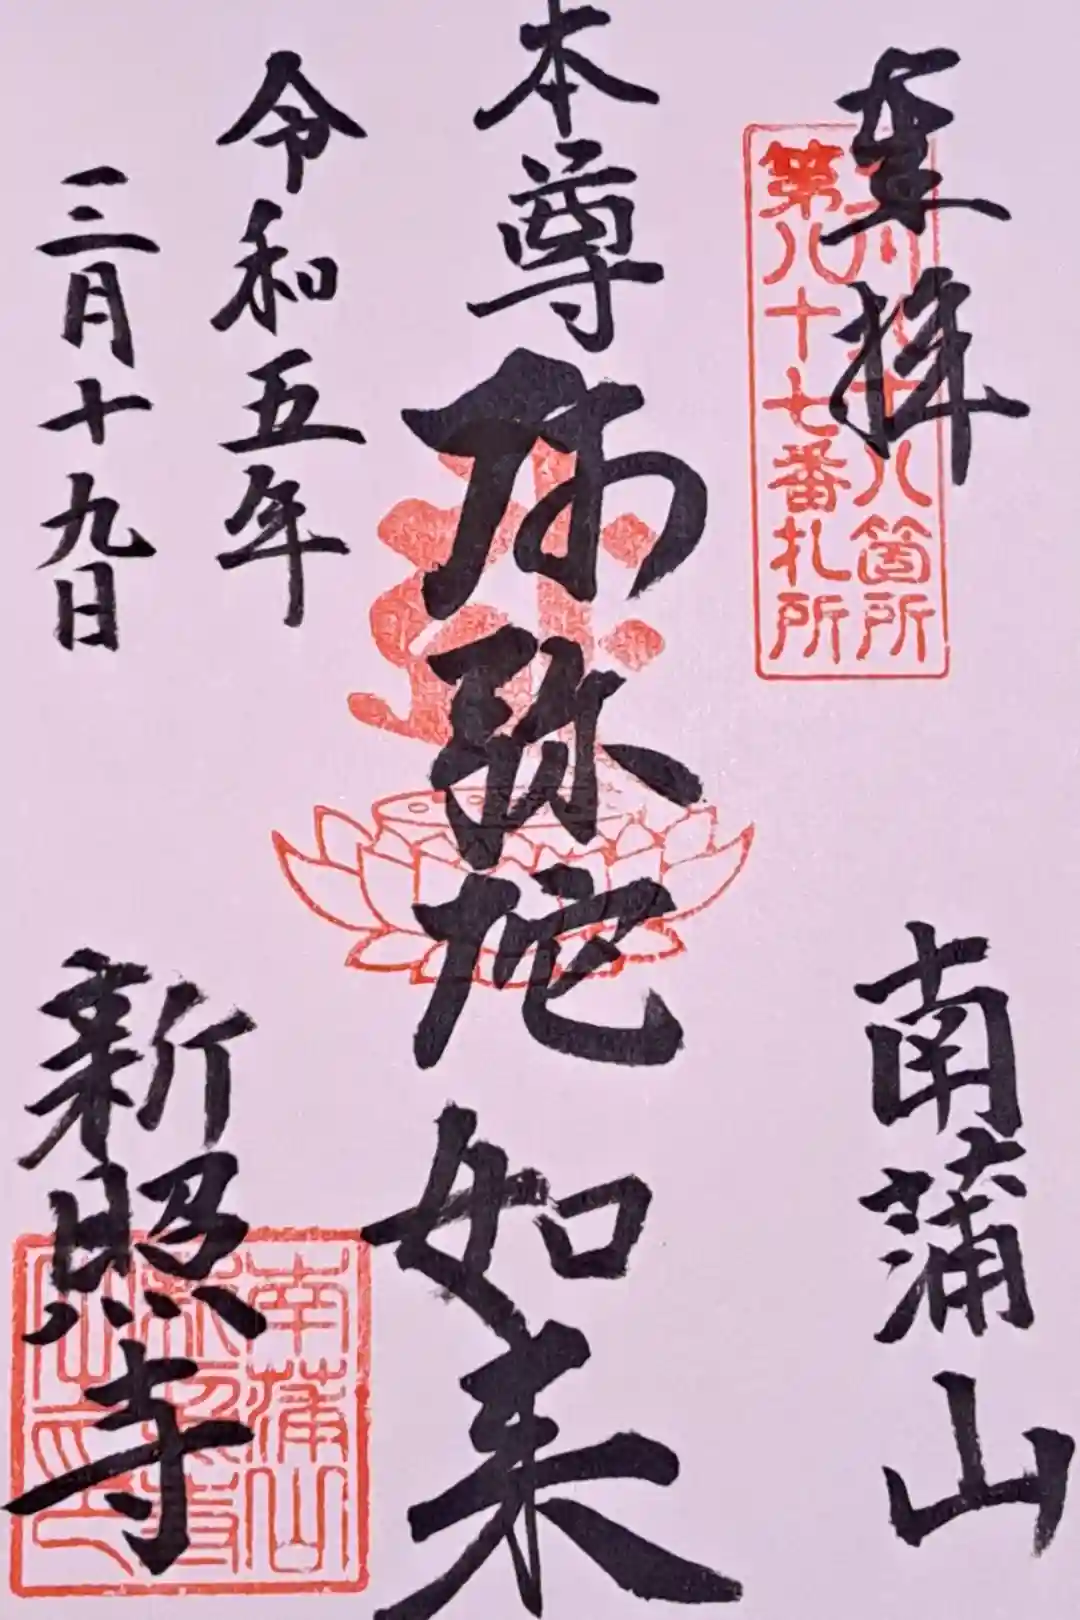 奉拝
八十八箇所
第八十七番札所
南蒲山
本尊
阿弥陀如来
令和五年
三月十九日
新照寺
南蒲山
新照寺
之印